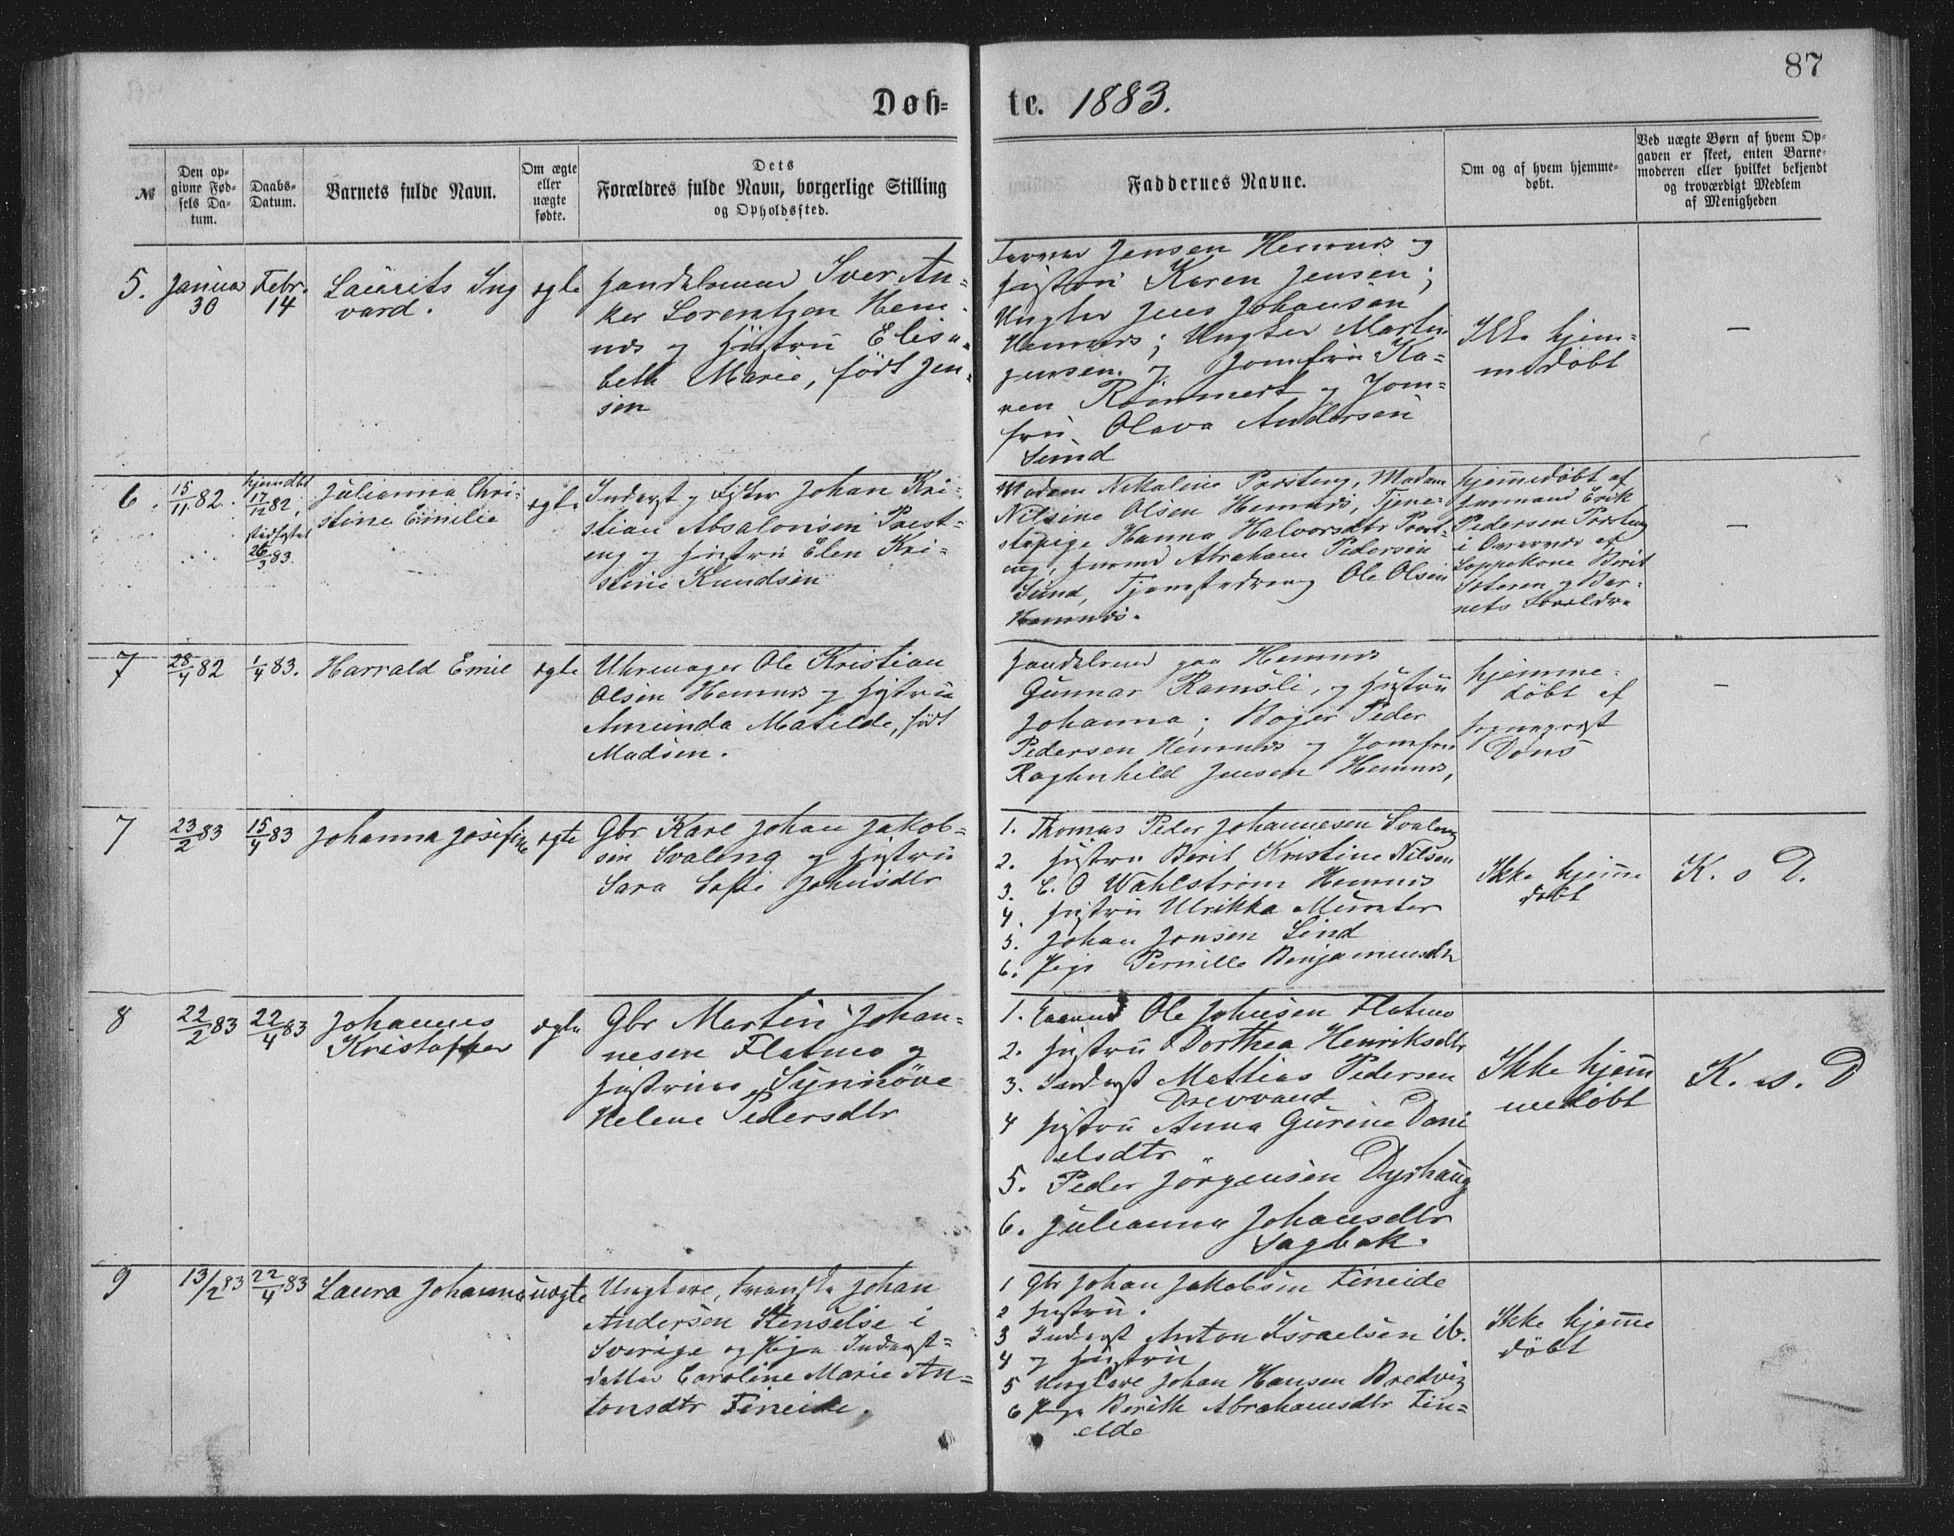 87
Døb- te. 1883.
№
Den op-
givne Fød-
sels Da-
tum.
Daabs-
Datum.
Barnets fulde Navn.
Om ægte
eller
uægte
fødte.
Dets
Forældres fulde Navn, borgerlige Stilling
og Opholdssted.
Faddernes Navne.
Om og af hvem hjemme-
døbt.
Ved uægte Børn af hvem Op-
gaven er skeet, enten Barne-
moderen eller hvilket bekjendt
og troværdigt Medlem
af Menigheden
5.
Januar
30
Febr.
14
Laurits Ing
vard.
ægte
Handelsmand Iver An-
ker Lorentzen Hem-
næs og Hustru Elisa-
beth Marie, født Jen-
sen
Jensen Hemnæs og
Hustru Karen Jensen;
Ungkar Jens Johansen
Hemnæs; Ungkar Martin
Jensen og Jomfru Ka-
ren Rimmert og Jom-
fru Olava Andersen
Sund
Ikke hjem-
medøbt
—
6.
15/11 82.
hjemdbt
17/12 82,
stadfæstet
26/3 83.
Julianna Chri-
stine Emilie
ægte
Inderst og Fisker Johan Kri-
stian Absalonsen Prest-
eng og Hustru Elen Kri-
stine Knudsen
Madam Nikoline Præsteng, Madam
Nilsine Olsen Hemnæs, Tjene-
stepige Hanna Halvorsdtr Prest-
eng, Abraham Pedersen
Sund, Tjenestedreng Ole Olsen
Hemnæs.
hjemmedøbt af
Gaarmand Erik
Pedersen Præsteng
i Overvær af
Koppekone Berit
og Bar-
nets Forældre
—
7
28/4 82
1/4 83.
Harrald Emil
ægte
Uhrmager Ole Kristian
Olsen Hemnæs og Hustru
Amunda Matilde, født
Madsen.
Handelsmd paa Hemnæs
Gunnar Ramsli, og Hustru
Johanna; Bager Peder
Pedersen Hemnæs og Jomfru
Raghnhild Jensen Hemnæs,
hjemme-
døbt af
Sogneprest
Dons
—
7
23/2 83
15/4 83
Johanna Josefine
ægte
Gbr Karl Johan Jakob-
sen Svaleng og Hustru
Sara Sofie Johnsdtr
1. Thomas Peder Johannesen Svaleng
2. Hustru Berit Kristine Nilsen
3. C. O Wahlstrøm Hemnæs
4. Hustru Ulrikka Munter
5. Johan Jonsen Sund
6. Pige Pernille Benjaminsdtr
Ikke hjemme
døbt
K. s D.
8
22/2 83
22/4 83
Johannes
Kristoffer
ægte
Gbr Martin Johan-
nesen Flatmo og
Hustru Synnöve
Helene Pedersdtr
1. Gaarmd Ole Johnsen Flatmo
2. Hustru Dorthea Henriksdtr
3. Inderst Mattias Pedersen
Drevvand
4 Hustru Anna Gurine Dani
elsdtr
5. Peder Jörgensen Dyrhaug
6. Julianna Johansdtr
Sagbak.
Ikke hjem
medøbt
K. s. D
9
13/2 83
22/4 83
Laura Johanna
uægte
Ungkare, svenske Johan
Andersön Stensele i
Sverige og Pige Inderst-
datter Caroline Marie An-
tonsdtr Fineide.
1 Gbr Johan Jakobsen Fineide
2 Hustru.
3 Inderst Anton Israelsen ib.
4 og Hustru
5 Ungkare Johan Hansen Bredvig
6 Pige Berith Abrahamsdtr Fin-
eide
Ikke hjemme
døbt